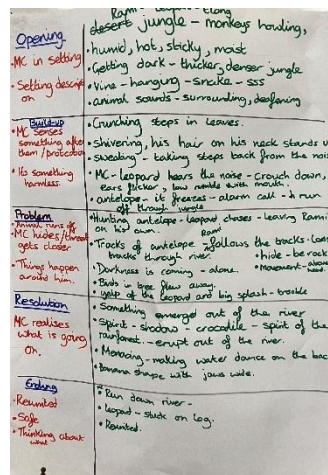 Opening
• MC in setting
• Setting descripti
on
Rami - Leopard - Elong
desert jungle - monkeys howling,
• humid, hot, sticky, moist
• Getting dark - thicker, denser jungle
• Vine - hanging - snake - sss
• animal sounds - surrounding, deafening
Build-up
• MC senses
something after
them / protection
• It's something
harmless.
• Crunching steps in leaves.
• shivering, his hair on his neck stands u
• sweating - taking steps back from the noi
• MC - leopard hears the noise - crouch down,
ears flicker, low rumble with mouth.
• antelope, it freezes - alarm call - run
off through jungle
Problem
• Animal runs off
• MC hides/threat
gets closer
• Things happen
around him.
• Hunting antelope - leopard chases - leaving Rami
on his own.
Rami
• Tracks of antelope - follows the tracks -
tracks through river.
• hide - be rock
• Darkness is coming - alone.
• Movement - above
• Birds in tree flew away.
• yelp of the leopard and big splash - trouble
Resolution
MC realises
what is going
on.
• Something emerged out of the river
• Spirit - shadow - crocodile - spirit of the
rainforest - erupt out of the river.
• Menacing - making water dance on the bac
• Banana shape with jaws wide.
Ending
• Reunited
• Safe
• Thinking about
what
• Run down river -
• leopard - stuck on log.
• Reunited.